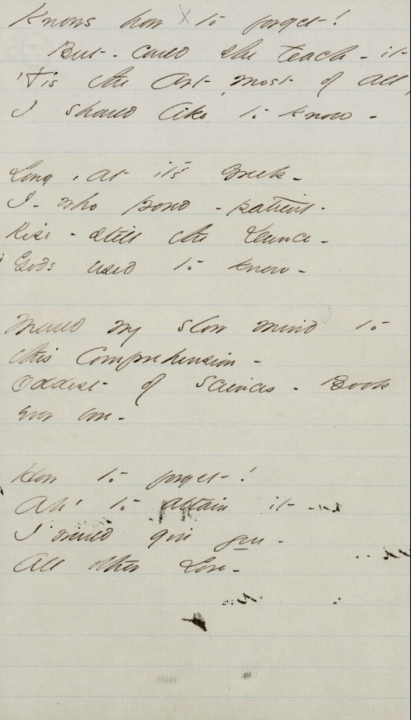 Knows how to forget!
But - could she teach - it -
'Tis the Art, most of all,
I should like to know -
Long, at it's Greek -
I - who pored - patient -
Rise - still the Dunce -
Gods used to know -
Mould my slow mind to
this Comprehension -
Oddest of Sciences - Book
ever bore -
How to forget!
Ah, to attain it -
I would give you -
All other Lore -